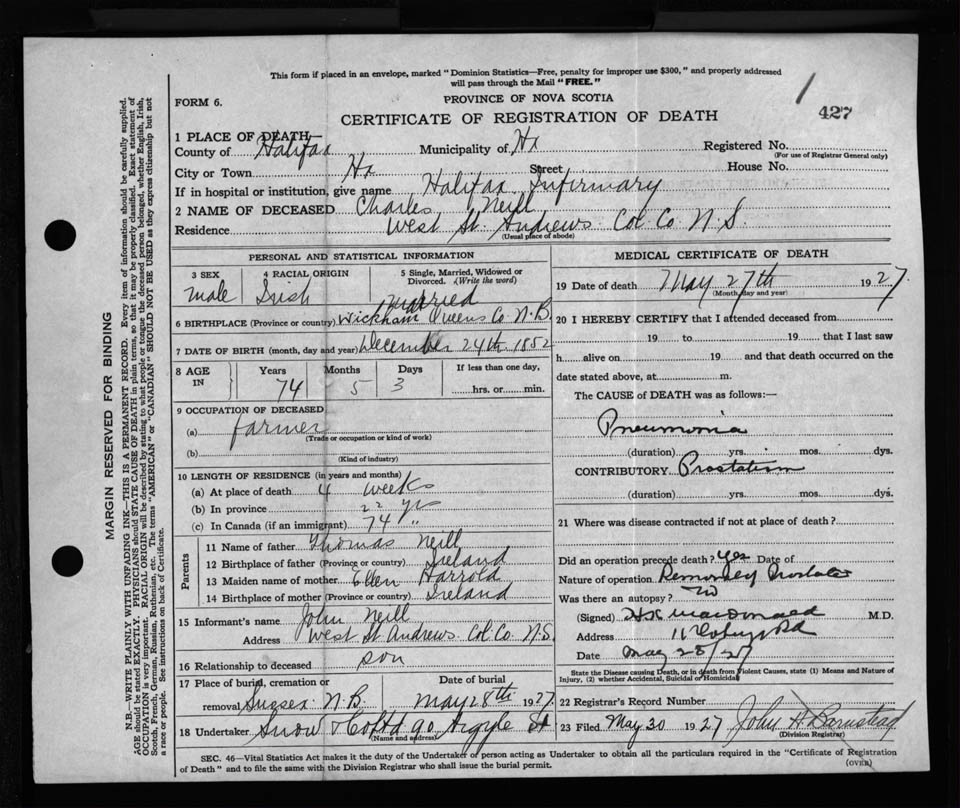 This form if placed in an envelope, marked "Dominion Statistics—Free, penalty for improper use $300," and properly addressed
will pass through the Mail "FREE."
FORM 6.
PROVINCE OF NOVA SCOTIA
427
CERTIFICATE OF REGISTRATION OF DEATH
1 PLACE OF DEATH—
County of Halifax Municipality of Hx Registered No.
(For use of Registrar General only)
City or Town Hx Street House No.
If in hospital or institution, give name Halifax Infirmary
2 NAME OF DECEASED Charles Neill
Residence West St. Andrews Col. Co N.S.
(Usual place of abode)
PERSONAL AND STATISTICAL INFORMATION
3 SEX 4 RACIAL ORIGIN 5 Single, Married, Widowed or
Divorced. (Write the word)
male Irish married
6 BIRTHPLACE (Province or country) Wickham Queens Co. N.B.
7 DATE OF BIRTH (month, day and year) December 24th 1852
8 AGE IN Years Months Days If less than one day,
74 5 3 hrs. or min.
9 OCCUPATION OF DECEASED
(a) farmer
(Trade or occupation or kind of work)
(b)
(Kind of industry)
10 LENGTH OF RESIDENCE (in years and months)
(a) At place of death 4 weeks
(b) In province 22 yrs
(c) In Canada (if an immigrant) 74 "
Parents
11 Name of father Thomas Neill
12 Birthplace of father (Province or country) Ireland
13 Maiden name of mother Ellen Harrold
14 Birthplace of mother (Province or country) Ireland
15 Informant's name John Neill
Address West St Andrews Col. Co. N.S.
16 Relationship to deceased son
17 Place of burial, cremation or Date of burial
removal Sussex N.B. May 28th 1927
18 Undertaker Snow & Co Ltd 90 Argyle St
(Name and address)
MEDICAL CERTIFICATE OF DEATH
19 Date of death May 27th 1927
(Month, day and year)
20 I HEREBY CERTIFY that I attended deceased from
19 to 19 that I last saw
h alive on 19 and that death occurred on the
date stated above, at m.
The CAUSE of DEATH was as follows:—
Pneumonia
(duration) yrs. mos. dys.
CONTRIBUTORY Prostatism
(duration) yrs. mos. dys.
21 Where was disease contracted if not at place of death?
Did an operation precede death? Yes Date of
Nature of operation Prostate
Was there an autopsy? no
(Signed) H.K. MacDonald M.D.
Address Rd
Date May 28/27
State the Disease causing Death, or in death from Violent Causes, state (1) Means and Nature of
Injury, (2) whether Accidental, Suicidal or Homicidal
22 Registrar's Record Number
23 Filed May 30 1927 John H Barnstead
(Division Registrar)
SEC. 46—Vital Statistics Act makes it the duty of the Undertaker or person acting as Undertaker to obtain all the particulars required in the "Certificate of Registration
of Death" and to file the same with the Division Registrar who shall issue the burial permit.
(OVER)
MARGIN RESERVED FOR BINDING
N.B.—WRITE PLAINLY WITH UNFADING INK—THIS IS A PERMANENT RECORD. Every item of information should be carefully supplied.
AGE should be stated EXACTLY. PHYSICIANS should STATE CAUSE OF DEATH in plain terms, so that it may be properly classified. Exact statement of
OCCUPATION is very important. RACIAL ORIGIN will be described by stating to what people or tongue the deceased person belonged, whether English, Irish,
Scotch, French, German, Russian, Ruthenian, etc. The terms "AMERICAN" or "CANADIAN" SHOULD NOT BE USED as they express citizenship but not
a race or people. See instructions on back of Certificate.